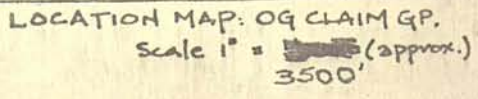 LOCATION MAP: OG CLAIM GP.
Scale 1" = (approx.)
3500'